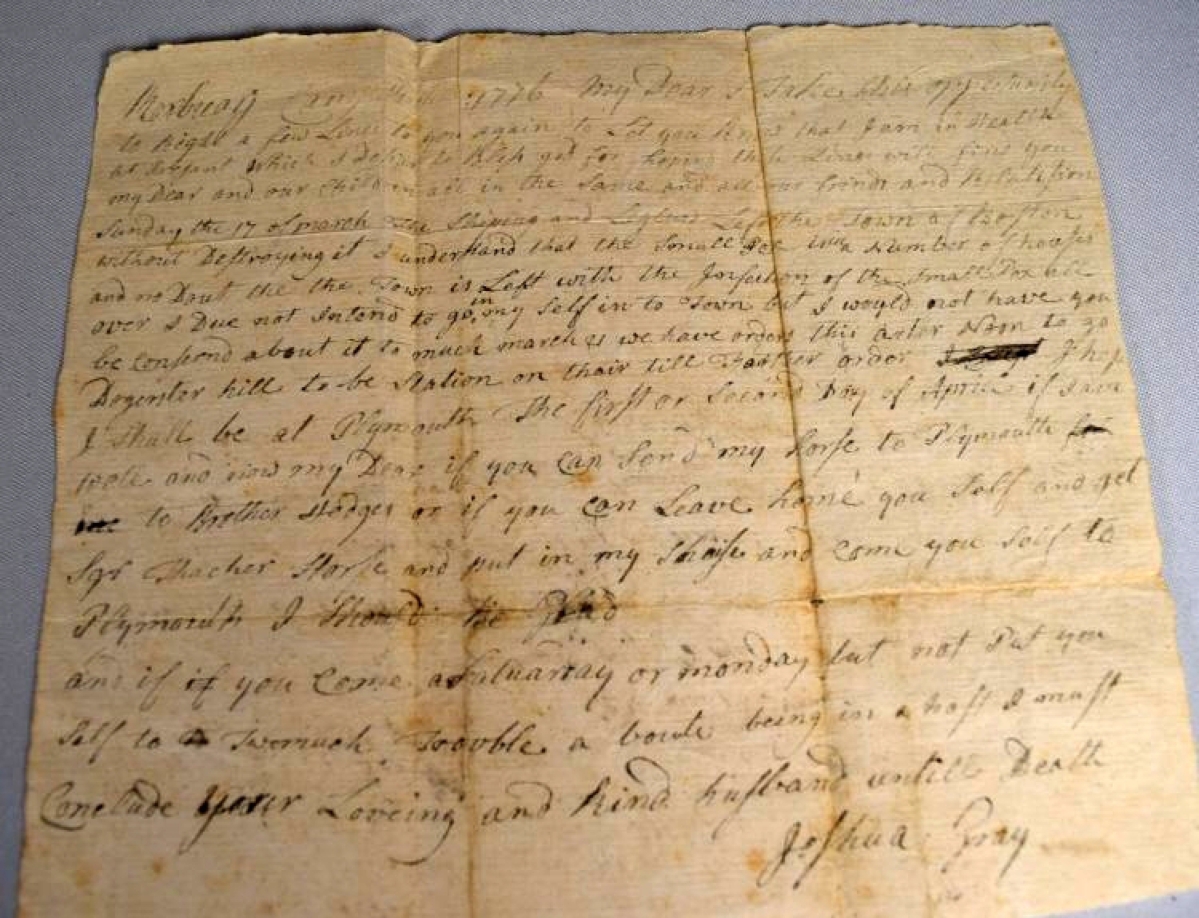 1776 My Dear I Take this oppertunity
to Right a few Lines to you again to Let you know that I am in Health
at which I desire to Bless god for hoping these Lines will find you
my Dear and our Children all in the Same and all our frinds and Relation
Sunday the 17 of march The Shiping and Left the Town of Boston
without Destroying it I understand that the Small Pox in a Number of houses
and no Dout the the Town is Left with the Infection of the Small Pox all
over I Due not Intend to go in my Self in to Town but I would not have you
be consend about it to much march we have orders this arter Noon to go
Dogester hill to be Station on thair till Farther order I hop
I shall be at Plymouth The first or Second Day of April if I am
and now my Dear if you can Send my horse to Plymouth
to Brother Hodges or if you can Leave home you Self and get
Sqr Thacher Horse and put in my Shaise and Come you Self to
Plymouth I Should be Glad
and if if you Come a Satuarday or monday but not Put you
Self to Twomuch Trouble a boute being in a hast I must
Conclude your Loveing and Kind husband untill Death
Joshua Gray